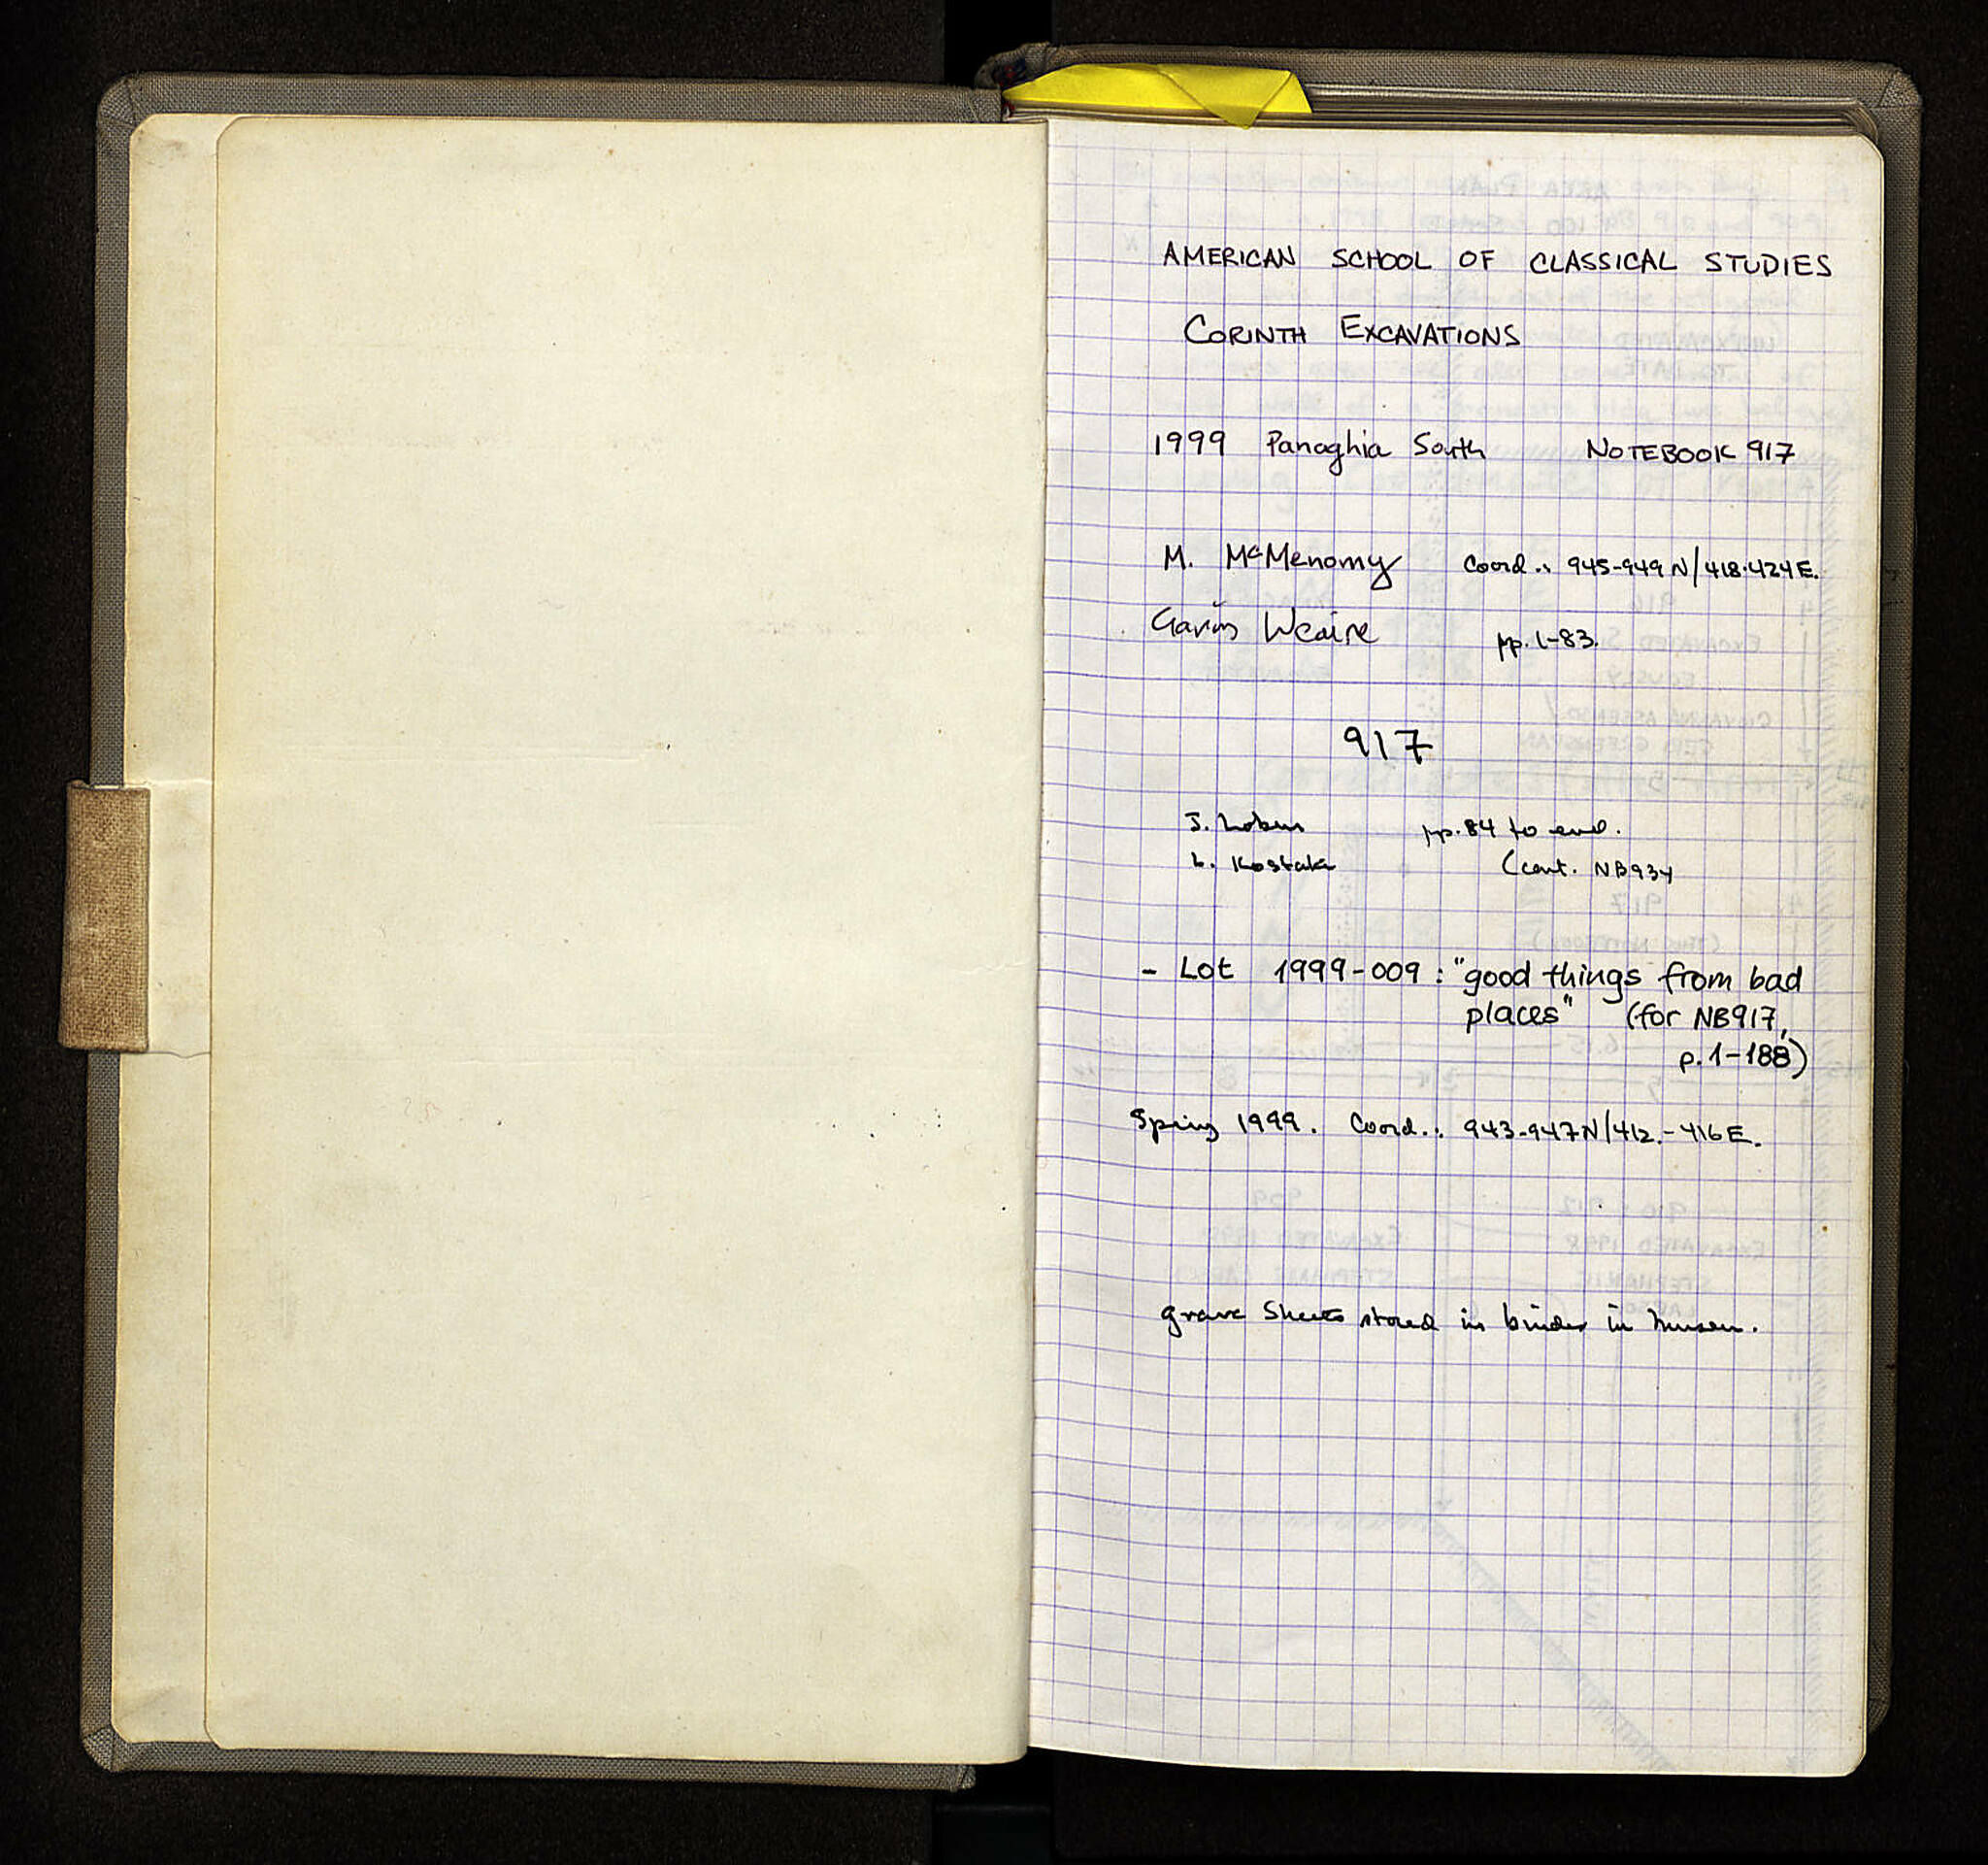 AMERICAN SCHOOL OF CLASSICAL STUDIES
CORINTH EXCAVATIONS
1999 Panaghia South NOTEBOOK 917
M. McMenomy Coord.: 945-949 N/418-424 E.
Gavin Weaire pp. 1-83.
917
J. pp. 84 to end.
L. Kostak (cont. NB934
- Lot 1999-009: "good things from bad
places" (for NB917,
p. 1-188)
Spring 1999. Coord.: 943-947 N/412.-416 E.
grave sheets stored in binder in museum.